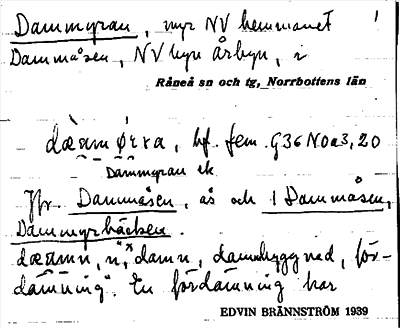 Dammyran, myr NV hemmanet 1
Dammåsen, NV byn Årbyn, i
Råneå sn och tg, Norrbottens län
bf. fem. G36 N0a3,20
Dammyran ek
Jfr Dammåsen, ås och 1 Dammåsen,
Dammyrbäcken.
damn, dammbyggnad, för-
dämning". En fördämning har
EDVIN BRÄNNSTRÖM 1939